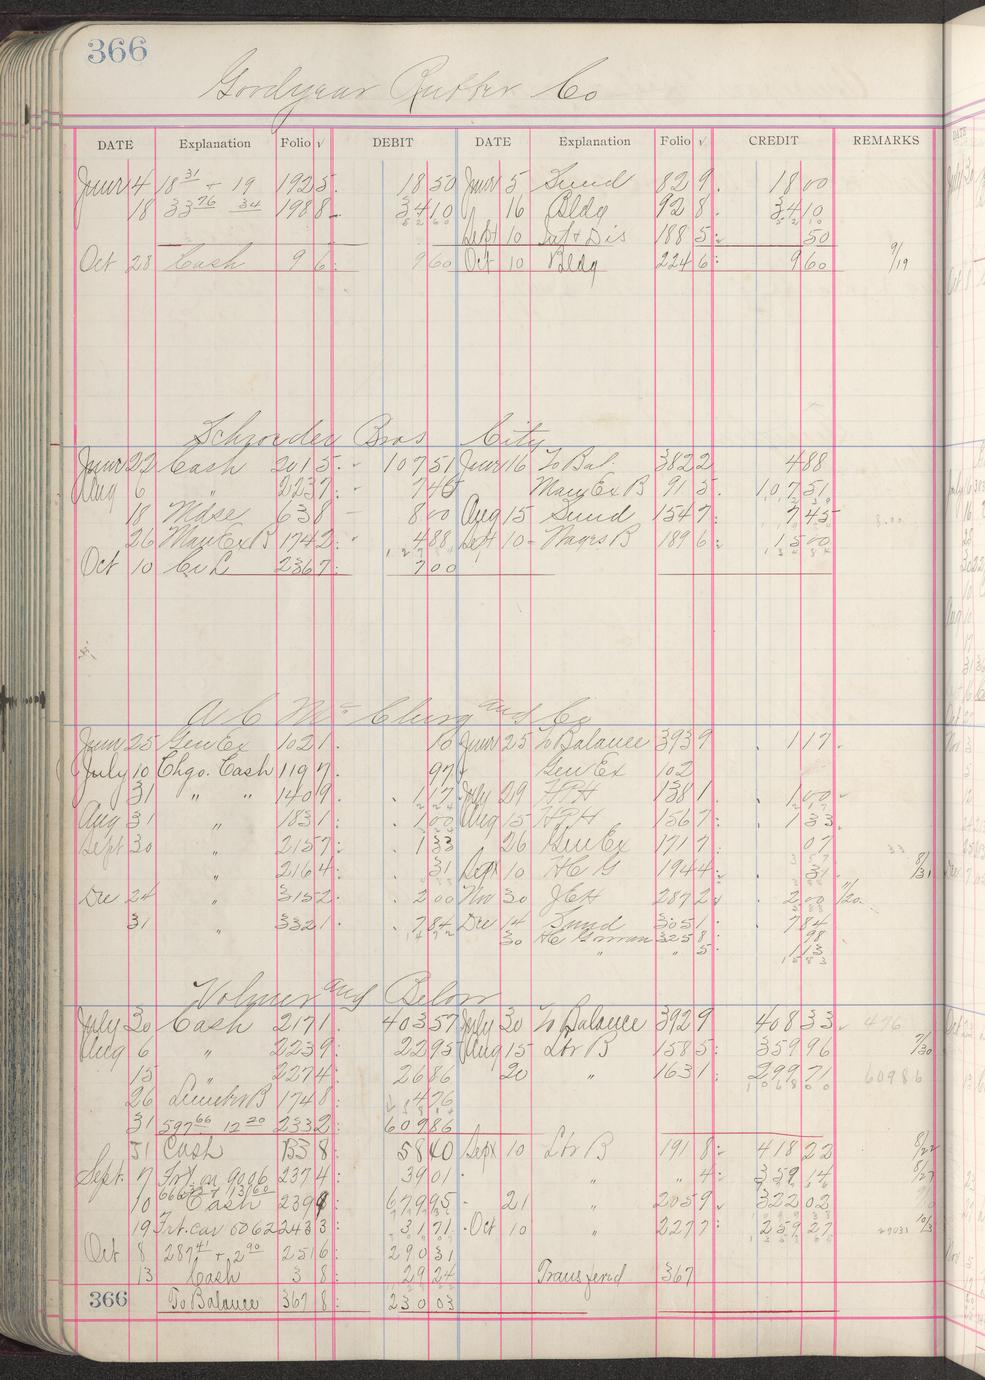 366
Goodyear Rubber Co
DATE Explanation Folio √ DEBIT DATE Explanation Folio √ CREDIT REMARKS
June 4 18 31 + 19 192 5 18 50 June 5 Sund 82 9 18 00
18 33 76 34 198 8 34 10 16 Bldg 92 8 34 10
Sept 10 Int + Dis 188 5 50
Oct 28 Cash 9 6 9 60 Oct 10 Bldg 224 6 9 60 9/19
Schroeder Bros City
June 22 Cash 201 5 107 51 June 16 To Bal. 382 2 4 88
Aug 6 " 223 7 7 45 Many Ex B 91 5 107 51
18 Mdse 63 8 8 00 Aug 15 Sund 154 7 7 45 8.00
26 Many Ex B 174 2 4 88 Sept 10 Wages B 189 6 15 00
Oct 10 236 7 7 00
A C Mc Clurg and Co
June 25 Gen Ex 102 1 10 June 25 To Balance 393 9 1 17
July 10 Chgo. Cash 119 7 97 Gen Ex 102
31 " " 140 9 1 17 July 29 138 1 1 00
Aug 31 " 183 1 1 00 Aug 15 156 7 1 33
Sept 30 " 215 7 1 33 26 Gen Ex 171 7 07 33
" 216 4 31 Sept 10 H C G 194 4 31 8/31
Dec 24 " 315 2 2 00 Nov 30 J E H 287 2 2 00 11/20
31 " 332 1 7 84 Dec 14 Sund 305 1 7 84
30 H C Gorman 325 8 98
" " 5 1 13
Volmer and Below
July 30 Cash 217 1 403 57 July 30 To Balance 392 9 408 33 4 76
Aug 6 " 223 9 22 95 Aug 15 Lbr B 158 5 359 96 7/30
15 " 227 4 26 86 20 " 163 1 299 71 609 86
26 Lumber B 174 8 4 76
31 597 66 12 20 233 2 609 86
31 Cash 58 40 Sept 10 Lbr B 191 8 418 22 8/22
Sept. 7 Frt. on 9006 237 4 39 01 " " 4 359 14 8/27
10 Cash 239 9 679 95 21 " 205 9 322 02
19 Frt. car 6062 243 3 31 71 Oct 10 " 227 7 259 27 290 31 10/3
Oct 8 287 41 + 2 90 251 6 290 31
13 Cash 3 8 29 24 Transfered 367
366 To Balance 367 8 230 03